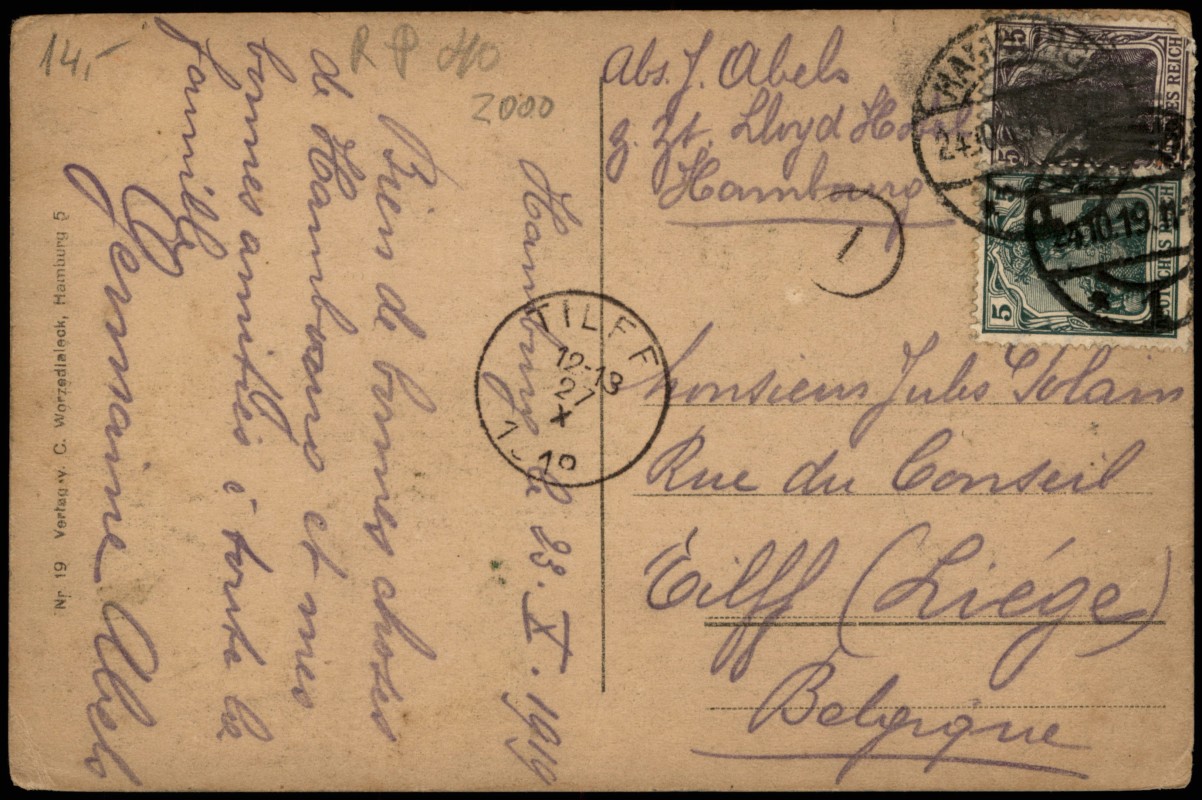 14,-
R P 40
2000
Hamburg le 23. X. 1919
Bien de bonnes choses
de Hambourg et mes
bonnes amitiés à toute la
famille
Germaine Abels
Nr. 19 Verlag v. C. Worzedialeck, Hamburg 5
Abs. J. Abels
z. Zt. Lloyd Hotel
Hamburg
1
15
DEUTSCHES REICH
5
DEUTSCHES REICH
24.10.19
TILFF
12-13
27
X
1919
Monsieur Jules
Rue du Conseil
Tilff (Liége)
Belgique